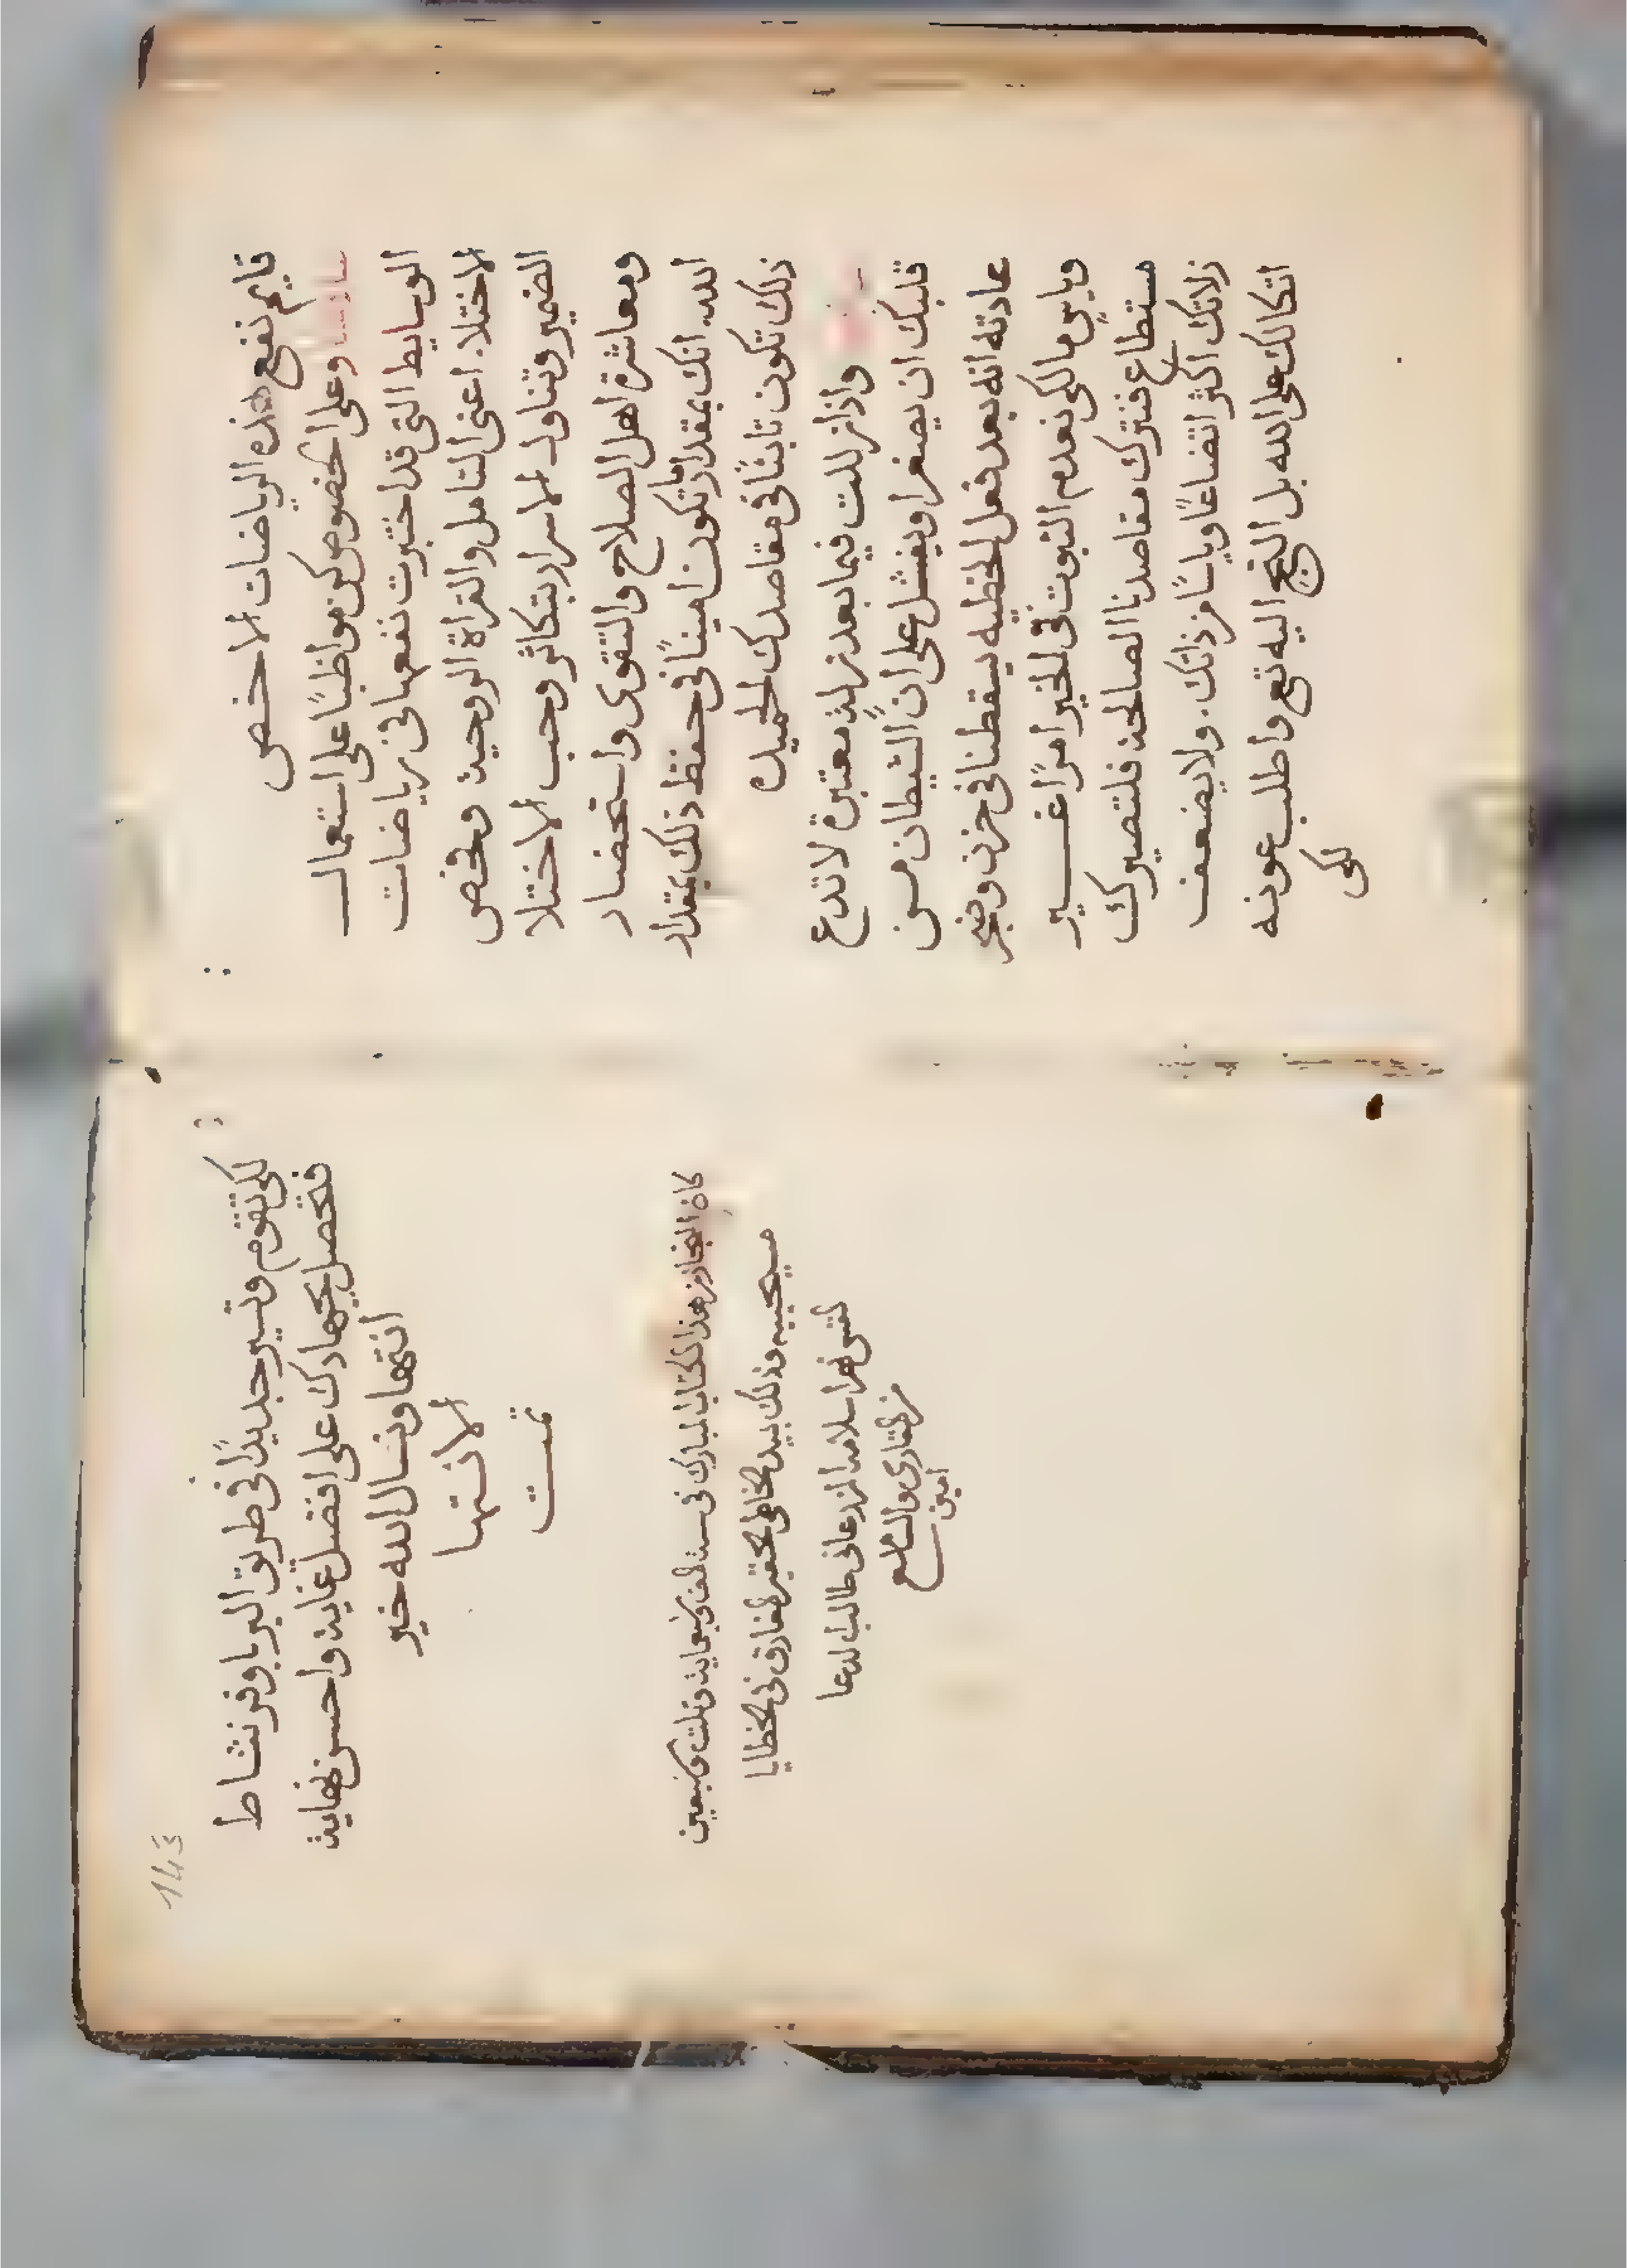 قايم نفع هذه الرياضات الاخص
سادسا وعلى الخصوص كن مواظبًا على استعمال
الوسايط التي قد اختبرت نفعها في رياضات
الاختلا. اعني التامل والقراة الروحية وفحص
الضمير وتناول الاسرار بتكاثر وحب الاختلا
ومعاشرة اهل الصلاح والتقوى واستحضار
الله. انك بمقدار ما تكون امينًا في حفظ ذلك بمقدار
ذلك تكون تابثًا في مقاصدك الحميده
واذا زللت فيما بعد زلة معتبرة لا تدع
قلبك ان يصغر او يفشل على ان الشيطان من
عادته انه بعد فعل الخطيه يسقطنا في حزن وضجر
وياسٍ ما لكي نعدم الثبوت في الخير امرًا غير
مستطاع فنترك مقاصدنا الصالحة فلتصيرك
زلاتك اكثر اتضاعًا وياسًا من ذاتك. ولا يضعف
اتكالك على الله بل التجِ اليه تع واطلب عونه
لكي
143
لكي تقوم وتسير جديدًا في طريق البر باوفر نشاط
فتحصل بجهادك على افضل غاية واحسن نهاية
انتها ونسال الله خير
الانتها
تمت
كان النجاز من هذا الكتاب المبارك في سنة الف وسبعماية وتلت وسبعين
مسيحييه وذلك بيد الخاطي الحقير الغارق في الخطايا
طالب الدعا
من القاري والسامع
امين